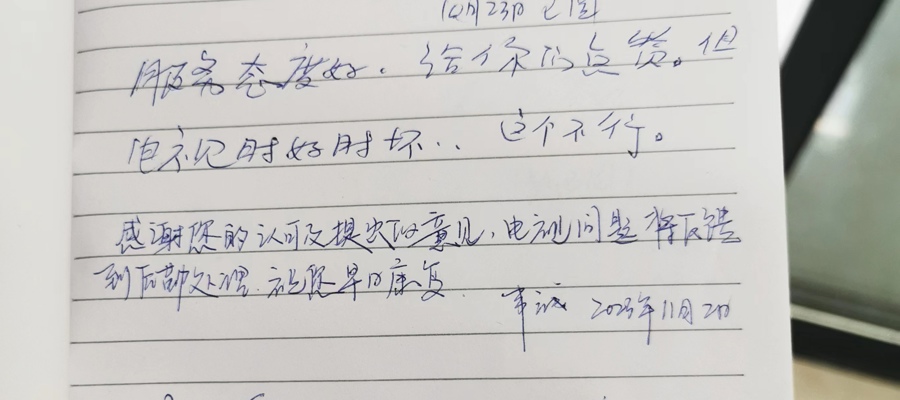 10月23日
服务态度好. 给你们点赞。但
电视时好时坏.. 这个不行。
感谢您的认可及提出的意见,电视问题将反馈
到后勤处理.祝您早日康复.
2023年11月2日